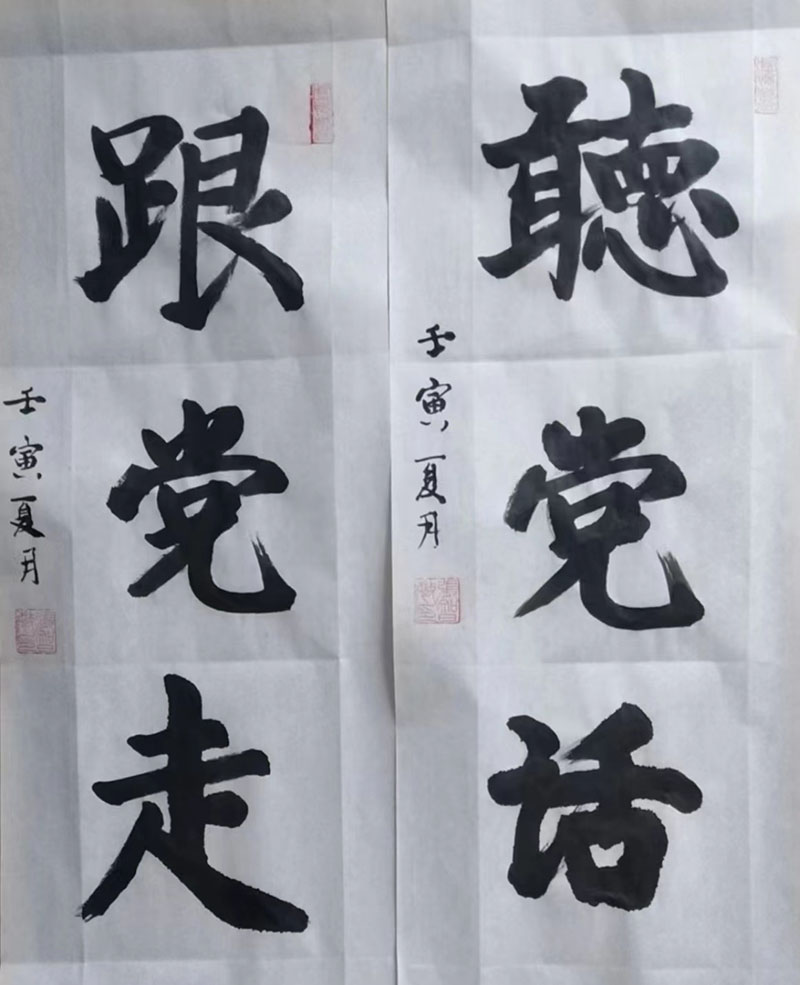 聽党话
壬寅夏月
跟党走
壬寅夏月